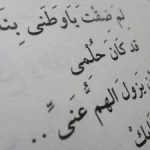 لم ضقت يا وطني بنا
قد كان حلمي
يزول الهم عني ..